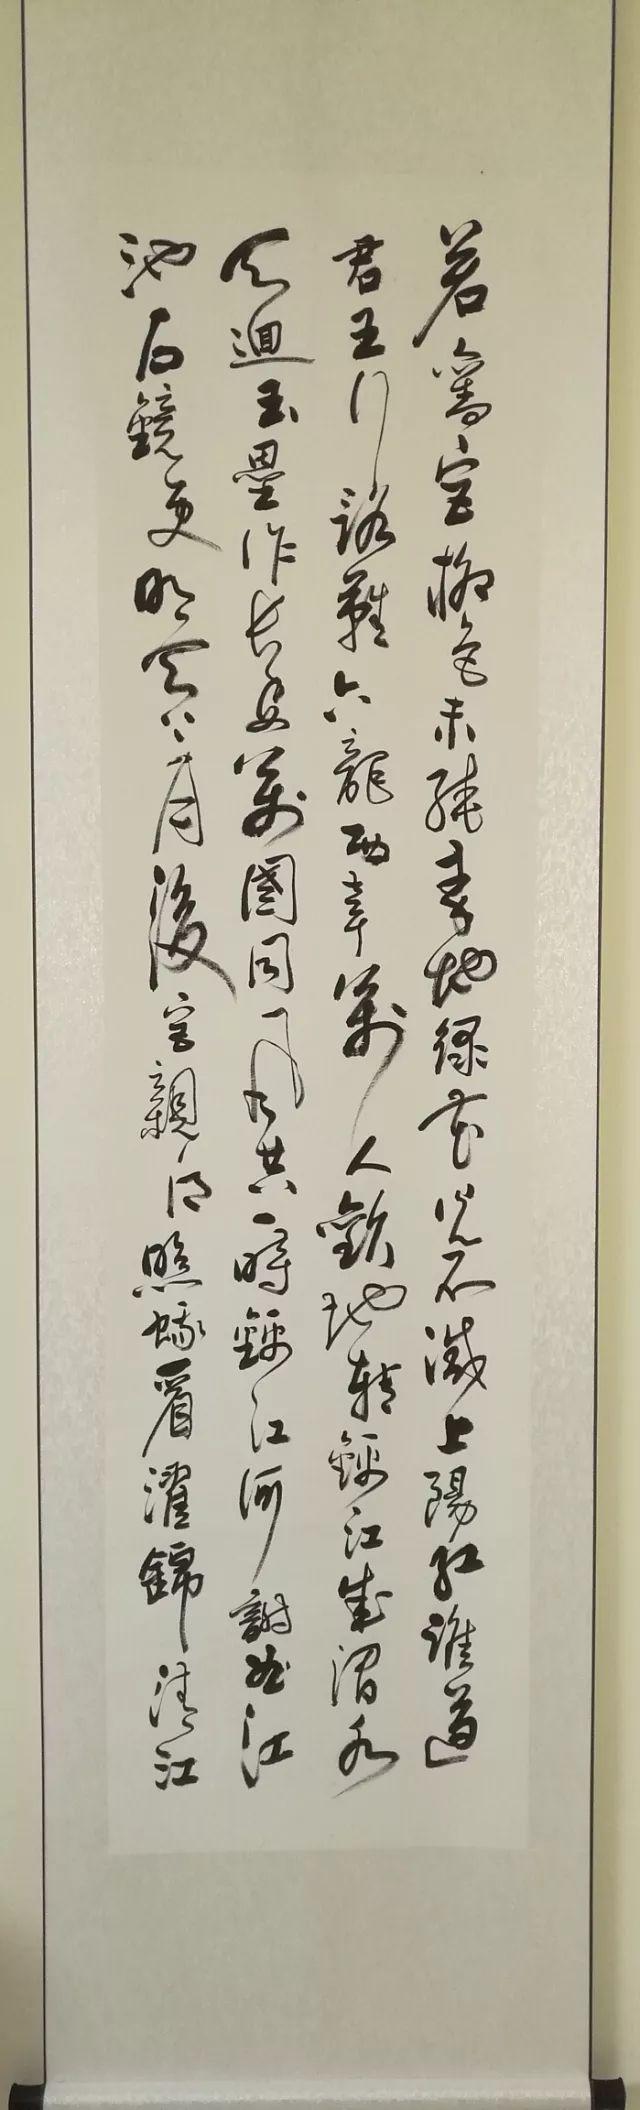 若舊宮柳色未饒秦地綠花光不減上陽紅誰道
君王行路難六龍西幸萬人歡地轉錦江成渭水
天迴玉壘作長安萬國同風共一時錦江何謝曲江
池石鏡更明天上月後宮親得照蛾眉濯錦清江